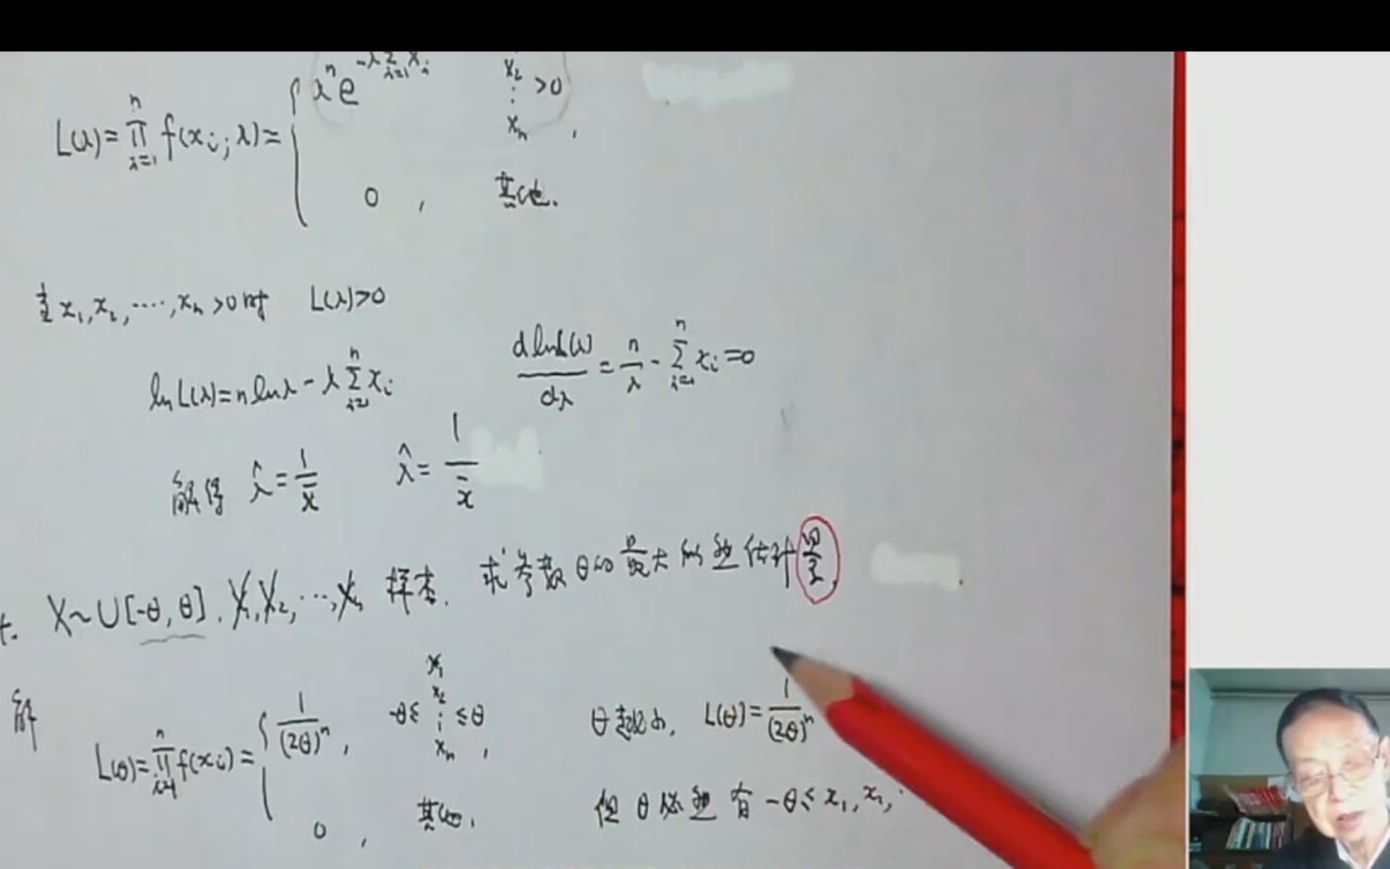 L(λ)=∏_{i=1}^{n} f(x_i;λ)= { λ^n e^{-λ∑_{i=1}^{n} x_i} x_2 ⋮ x_n >0,
0, 其他.
当 x_1,x_2,⋯,x_n>0时 L(λ)>0
ln L(λ)=n ln λ - λ∑_{i=1}^{n} x_i d ln L(λ)/dλ = n/λ - ∑_{i=1}^{n} x_i =0
解得 λ̂=1/x̄ λ̂=1/x̄
X~U[-θ, θ]. X_1,X_2,⋯,X_n 样本. 求参数θ的最大似然估计量.
解 L(θ)=∏_{i=1}^{n} f(x_i)= { 1/(2θ)^n, -θ≤ x_1 x_2 ⋮ x_n ≤θ,
0, 其他.
θ越小, L(θ)=1/(2θ)^n
但 θ必须有 -θ≤x_1,x_2,